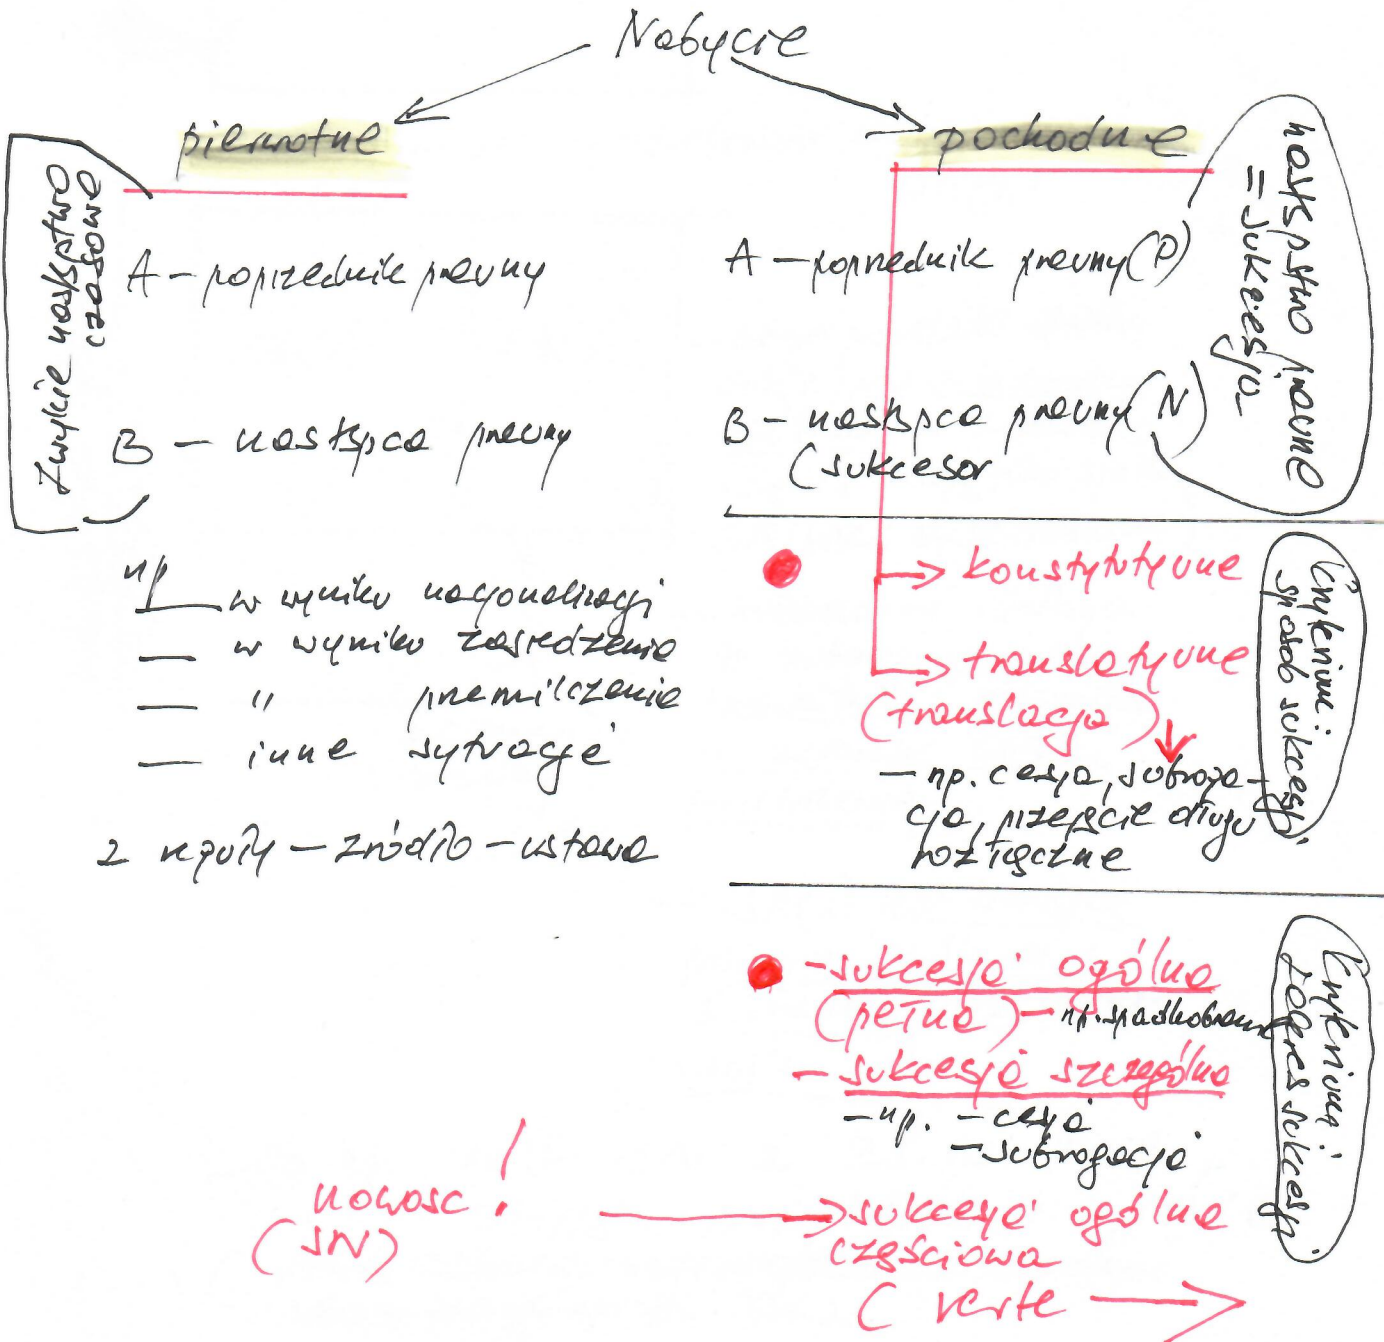 Nabycie
pierwotne
Zwykłe następstwo
czasowe
A – poprzednik prawny
B – następca prawny
np
— w wyniku nacjonalizacji
— w wyniku zasiedzenia
— " przemilczenia
— inne sytuacje
z reguły – źródło – ustawa
pochodne
następstwo prawne
= sukcesja
A – poprzednik prawny (P)
B – następca prawny (N)
(sukcesor
→ konstytutywne
→ translatywne
(translacja)
– np. cesja, subroga-
cja, przejęcie długu
rozłączne
Kryterium:
sposób sukcesji
– sukcesja ogólna
(pełna) – np. spadkobranie
– sukcesja szczególna
– np. – cesja
– subrogacja
nowość !
(SN)
→ sukcesja ogólna
częściowa
( verte →
Kryterium:
zakres sukcesji